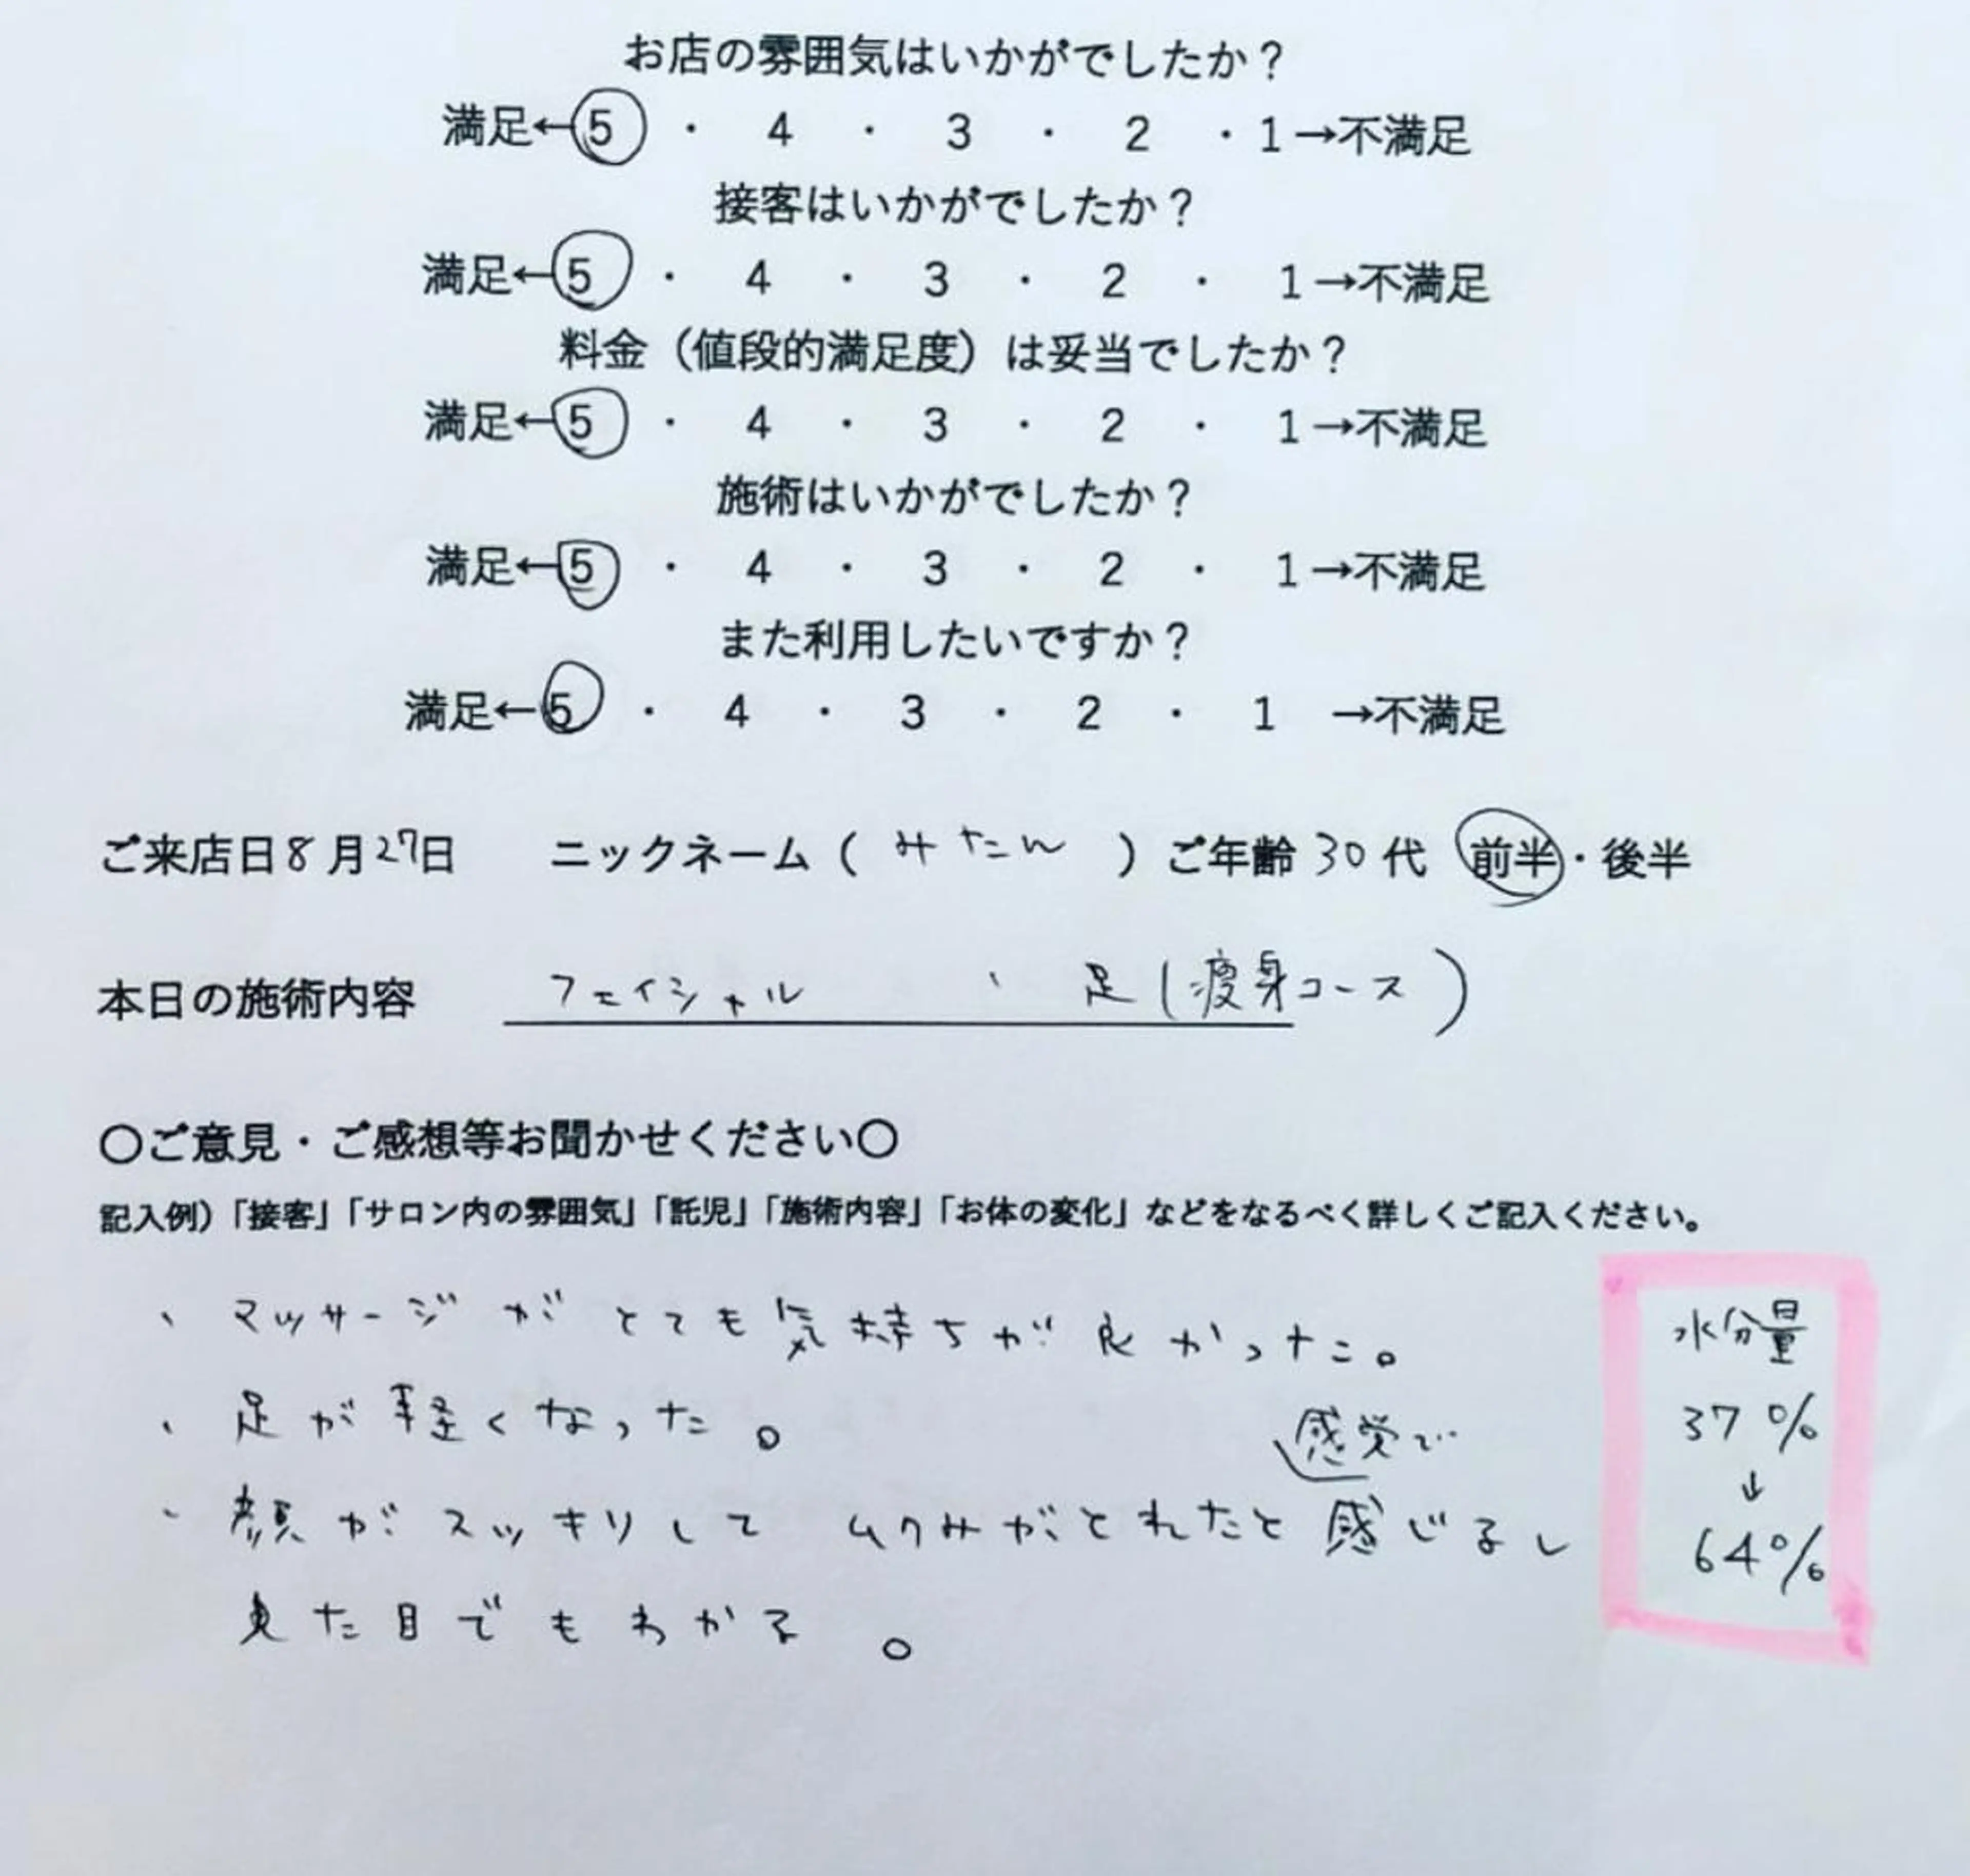 お店の雰囲気はいかがでしたか？
満足←5 ・ 4 ・ 3 ・ 2 ・1→不満足
接客はいかがでしたか？
満足←5 ・ 4 ・ 3 ・ 2 ・ 1→不満足
料金（値段的満足度）は妥当でしたか？
満足←5 ・ 4 ・ 3 ・ 2 ・ 1→不満足
施術はいかがでしたか？
満足←5 ・ 4 ・ 3 ・ 2 ・ 1→不満足
また利用したいですか？
満足←5 ・ 4 ・ 3 ・ 2 ・ 1 →不満足
ご来店日8月27日 ニックネーム（ みたん ）ご年齢30代 前半・後半
本日の施術内容 フェイシャル 、足(痩身コース)
〇ご意見・ご感想等お聞かせください〇
記入例）「接客」「サロン内の雰囲気」「託児」「施術内容」「お体の変化」などをなるべく詳しくご記入ください。
、マッサージがとても気持ちが良かった。
、足が軽くなった。
感覚で
、顔がスッキリして ムクみがとれたと感じるし
見た目でもわかる。
水分量
37%
↓
64%